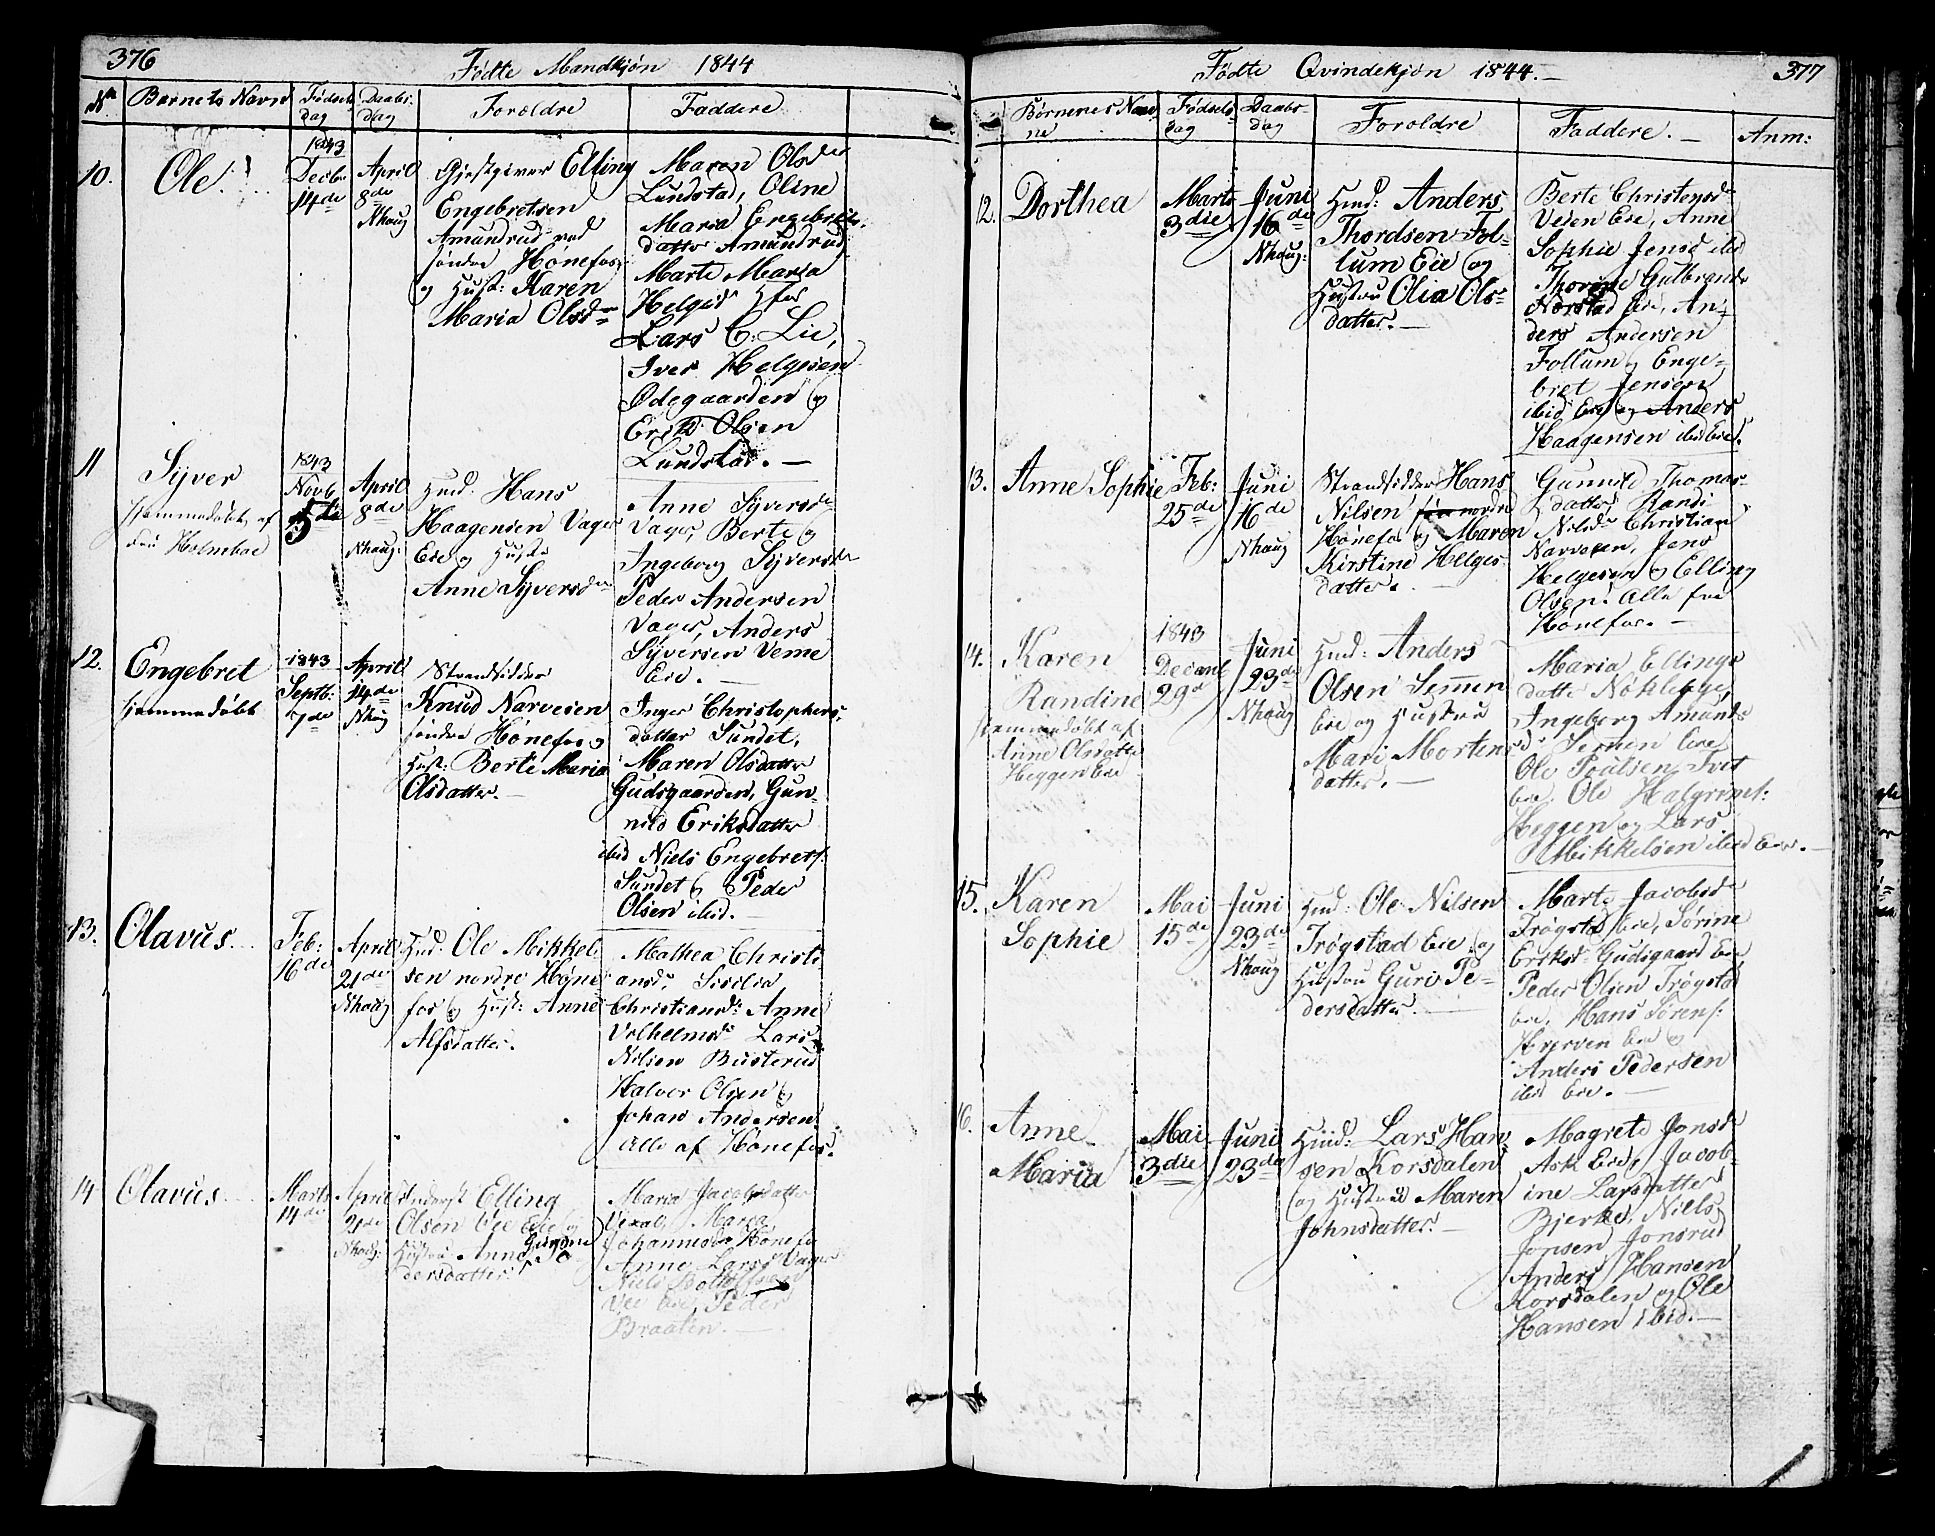 376
Fødte Mandkjøn 1844
No Barnets Navn Fødsels dag Daabs dag Foroldre Faddere
10. Ole.
1843
Decbr.
14de
April
8de
Nhoug
Gjestgiver Elling
Engebretsen
Amundrud ved
søndre Hønefos
og Hust: Karen
Maria Olsdr
Maren Olsdr
Lundstad, Oline
Maria Engebrets
datter Amundrud,
Marte Maria
Helgesdr Hfos
Lars C. Lie,
Iver Helgesen
Ødegaarden og
Erik Olsen
Lundstad. —
11 Syver
hjemmedøbt af
Holmboe
1843
Novb
5de
April
8de
Nhoug:
Huusd. Hans
Haagensen Vager
Eie og Hustr
Anne Syversdr
Anne Syversdr
Vager, Berte og
Ingeborg Syversdr
Peder Andersen
Vager, Anders
Syversen Veme
Eie. —
12. Engebret
hjemmedøbt
1843
Septb:
7de
April
14de
Nhoug
Strandsidder
Knud Narvesen
søndre Hønefos og
Hust: Berte Maria
Olsdatter. —
Inger Christophers-
datter Sundet,
Maren Olsdatter
Gudsgaarden, Gun-
nild Eriksdatter
ibid Niels Engebrets:
Sundet og Peder
Olsen ibid. —
13. Olavus.
Feb:
16de
April
21de
Nhoug
Huusd: Ole Mikkel-
sen nordre Høne-
fos og Hust: Anne
Alfsdatter.
Mathea Christi-
ansd, Sisilia
Christiansdr Anne
Vilhelmsdr Lars
Nilsen Busterud
Halvor Olsen og
Johan Andersen
alle af Hønefos.
14 Olavus
Marts
14de
April
21de
Nhoug:
Elling
Olsen Vee Eie og
Hustru Anne Gurine Pe-
dersdatter.
Maria Jacobsdatter
Vexal, Maria
Johannesdr Hønefos
Anne Larsdr Vager
Niels
Vee Eie, Peder
Braaten. —
377
Fødte Qvindekjøn 1844. —
Børnenes Nav-
ne
Fødsels
dag
Daabs-
dag
Foroldre Faddere. — Anm:
12. Dorthea
Marts
3die
Juni
16de
Nhoug:
Huusd: Anders
Thordsen Fol-
lum Eie og
Hustru Olia Ols-
datter. —
Berte Christensdr
Veien Eie, Anne
Sophie Jensd ibid
Thorine Gulbrandsdr
Norstad Eie, An-
ders Andersen
Follum og Enge-
bret Jensen
ibid Eie og Anders
Haagensen ibid Eie.
13. Anne Sophie
Feb:
25de
Juni
16de
Nhoug
Strandsidder Hans
Nilsen nordre
Hønefos og Maren
Kirstine Helges-
datter.
Gunnild Thomas-
datter, Randi
Nilsdr Christian
Narvesen, Jens
Helgesen og Elling
Olsen. Alle fra
Hønefos. —
14. Karen
Randine
hjemmedøbt af
Anne Olsdatter
Heggen Eie
1843
Decemb
29de
Juni
23de
Nhoug
Huusd: Anders
Olsen Semmen
Eie og Hustru
Mari Mortens-
datter. —
Maria Ellings
datter Nøkleby,
Ingeborg Amundsdr
Semen Eie
Ole Poulsen Tvet
Eie, Ole Halgrims:
Heggen og Lars
Mikkelsen ibid Eie. —
15. Karen
Sophie
Mai
15de
Juni
23de
Nhoug
Huusd: Ole Nilsen
Trøgstad Eie og
Hustru Guri Pe-
dersdatter. —
Marte Jacobsdr
Trøgstad Eie, Sorine
Eriksdr Gudsgaard Eie
Peder Olsen Trøgstad
Eie, Hans Sørens:
Hverven Eie og
Anders Pedersen
ibid Eie. —
16. Anne
Maria
Mai
3die
Juni
23de
Huusd: Lars Han-
sen Korsdalen
og Hustrue Maren
Johnsdatter. —
Magrete Jonsdr
Ask Eie, Jacob-
ine Larsdatter
Bjerke, Niels
Jonsen Jonsrud
Anders Hansen
Korsdalen og Ole
Hansen ibid. —